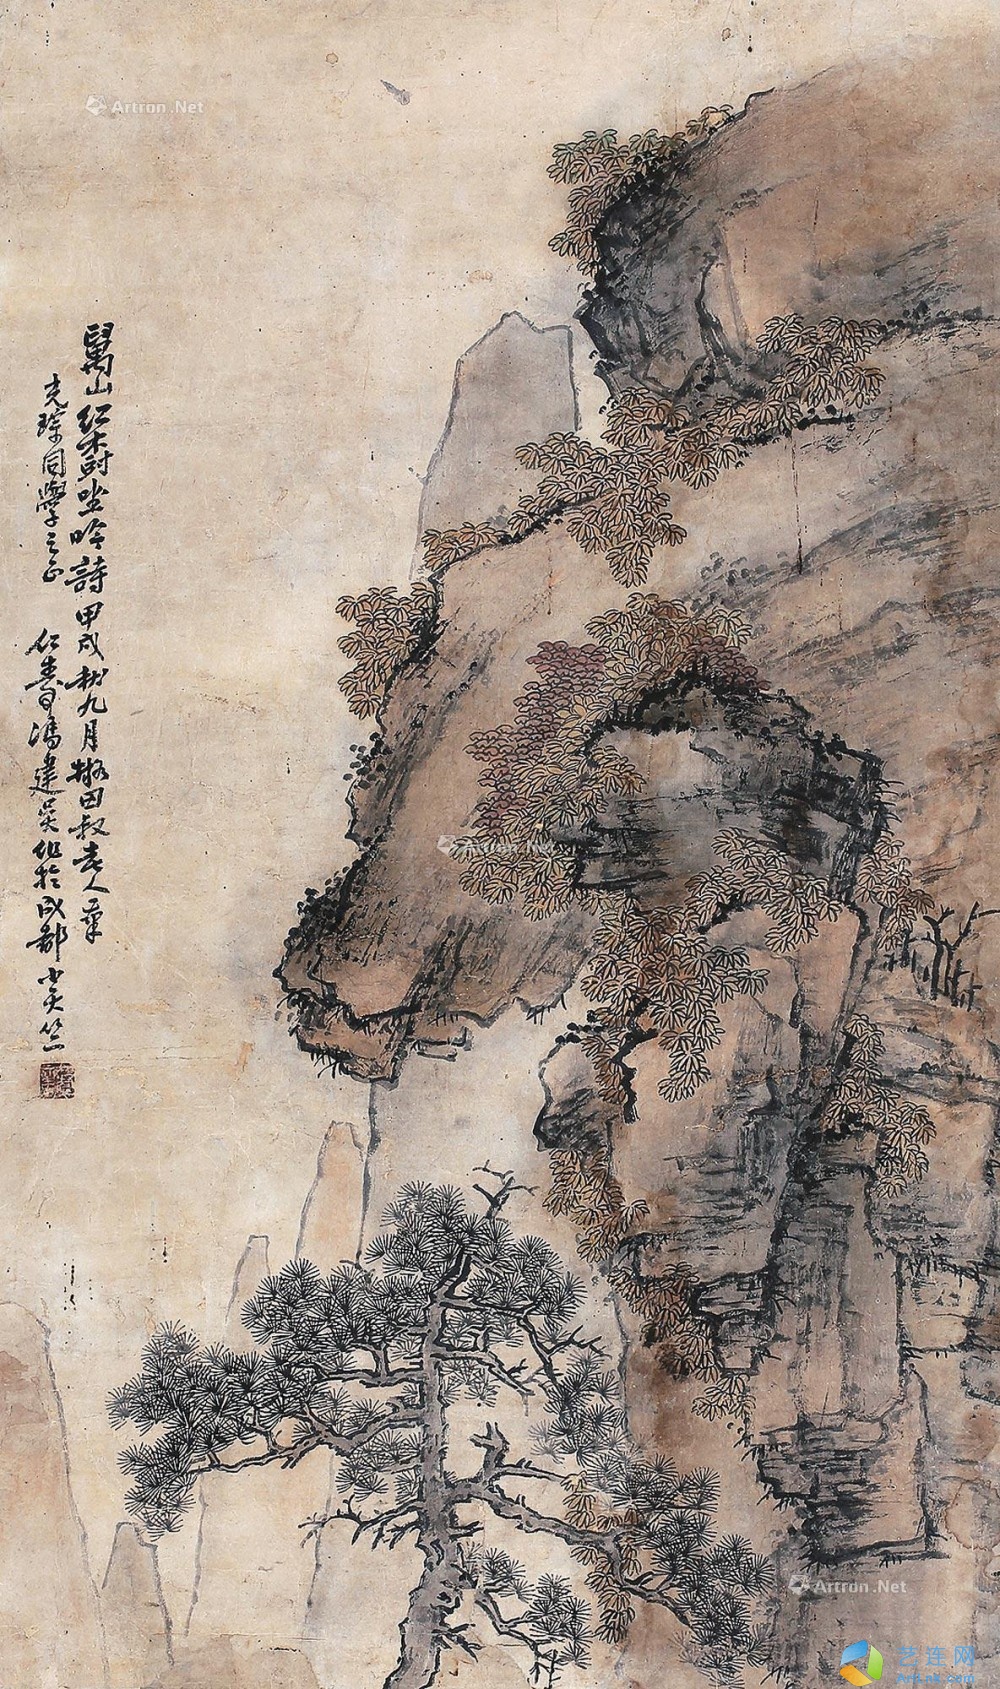 萬山红樹坐吟詩甲戌秋九月撫田叔老人筆
克瑹同學之正
仁壽馮建吴作於成都小天竺
Artron.Net
Artron.Net
Artron.Net
艺连网
ArtLnk.com